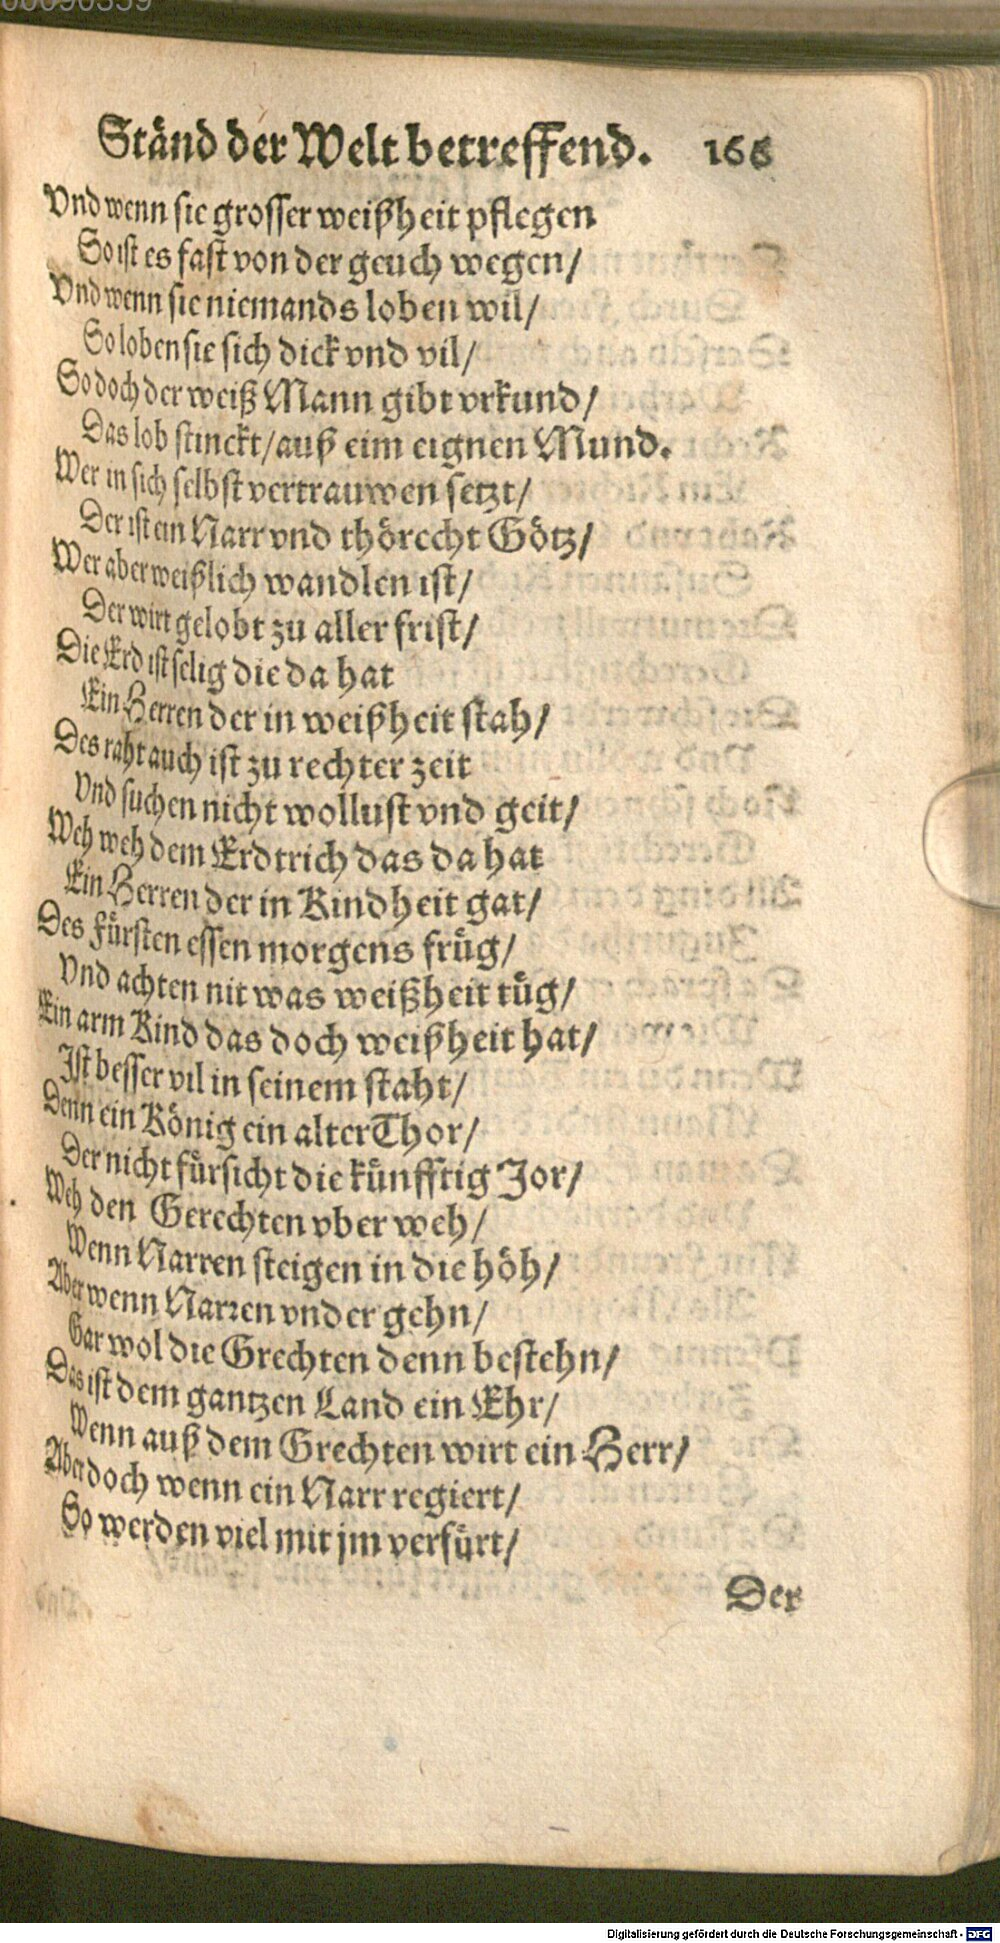 00090359
Ständ der Welt betreffend. 166
Vnd wenn sie grosser weißheit pflegen
So ist es fast von der geuch wegen/
Vnd wenn sie niemands loben wil/
So loben sie sich dick vnd vil/
So doch der weiß Mann gibt vrkund/
Das lob stinckt/auß eim eignen Mund.
Wer in sich selbst vertrauwen setzt/
Der ist ein Narr vnd thörecht Götz/
Wer aber weißlich wandlen ist/
Der wirt gelobt zu aller frist/
Die Erd ist selig die da hat
Ein Herren der in weißheit stah/
Des raht auch ist zu rechter zeit
Vnd suchen nicht wollust vnd geit/
Weh weh dem Erdtrich das da hat
Ein Herren der in Kindheit gat/
Des Fürsten essen morgens früg/
Vnd achten nit was weißheit tüg/
Ein arm Kind das doch weißheit hat/
Ist besser vil in seinem staht/
Denn ein König ein alter Thor/
Der nicht fürsicht die künfftig Jor/
Weh den Gerechten vber weh/
Wenn Narren steigen in die höh/
Aber wenn Narren vnder gehn/
Gar wol die Grechten denn bestehn/
Das ist dem gantzen Land ein Ehr/
Wenn auß dem Grechten wirt ein Herr/
Aber doch wenn ein Narr regiert/
So werden viel mit jm verfürt/
Der
Digitalisierung gefördert durch die Deutsche Forschungsgemeinschaft - DFG